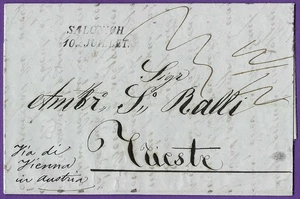 SALONICH
10. JUILLET.
Sigr
Ambr. Sto Ralli
Trieste
Via di
Vienna
in austria